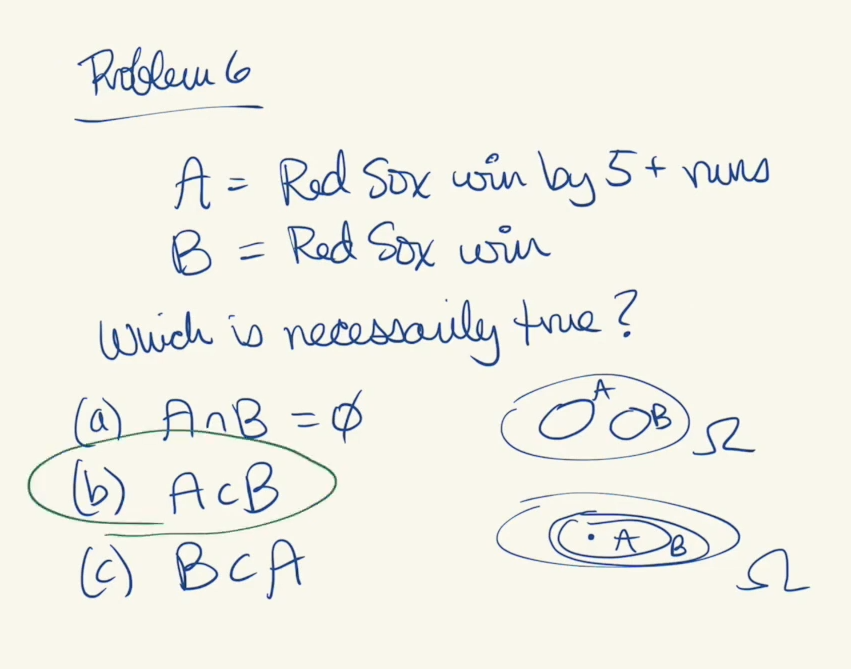 Problem 6
A = Red Sox win by 5+ runs
B = Red Sox win
Which is necessarily true?
(a) A∩B = ∅
A B Ω
(b) A⊂B
A B Ω
(c) B⊂A